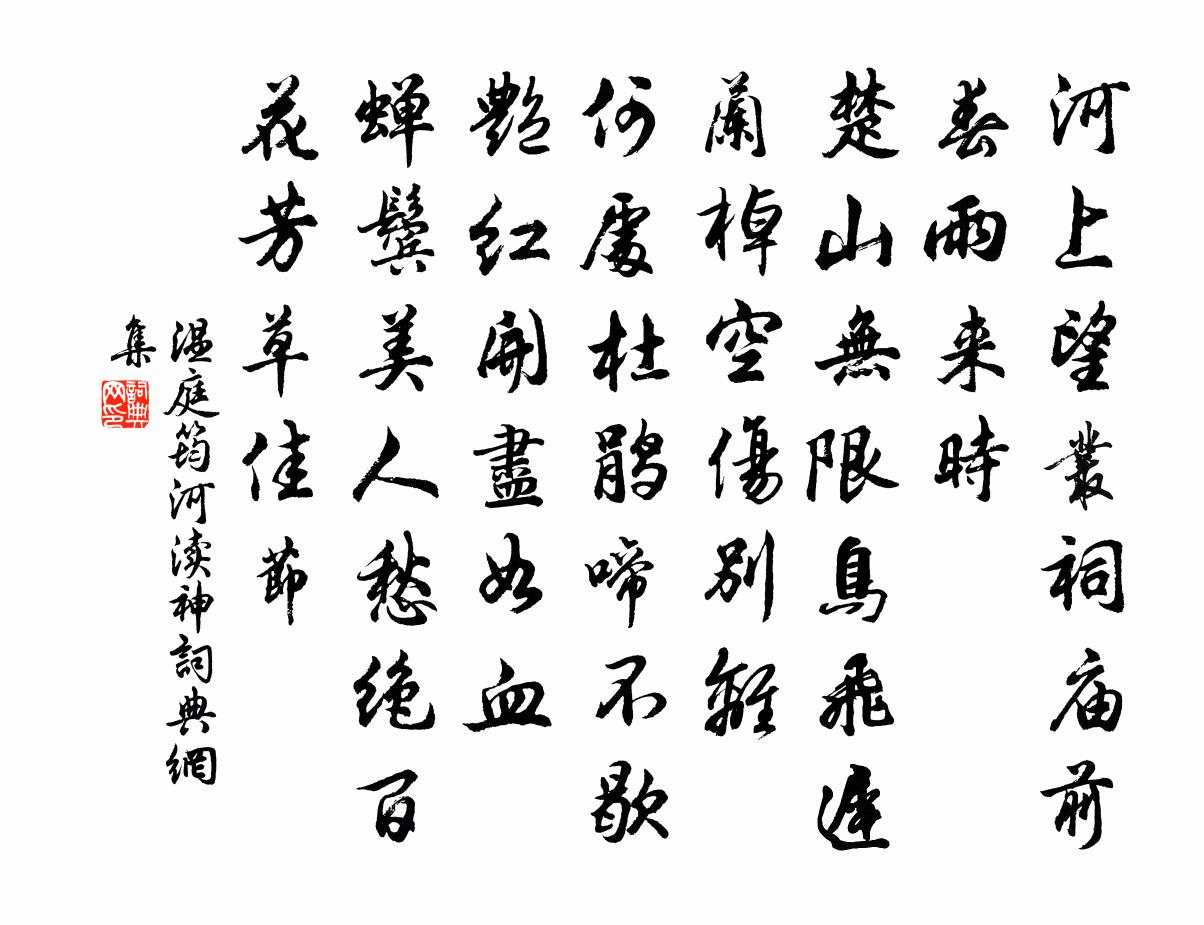 河上望叢祠庙前
春雨来時
楚山無限鳥飛遲
蘭棹空傷別離
何處杜鹃啼不歇
艷红開盡如血
蝉鬢美人愁绝百
花芳草佳節
温庭筠河渎神詞典網
集
詞典
网印